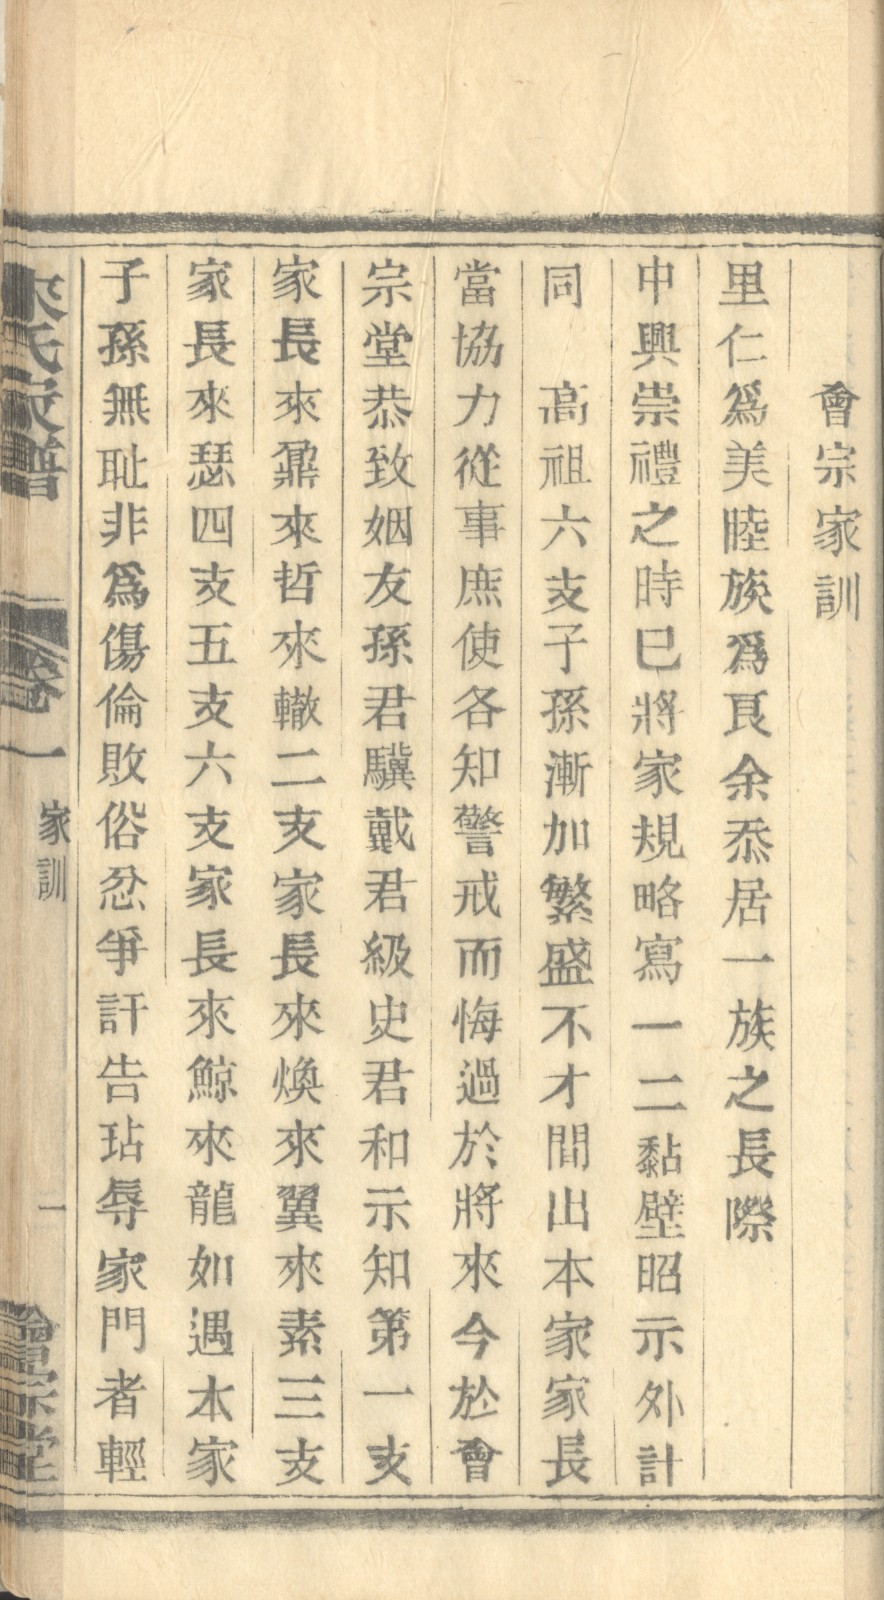 會宗家訓
里仁為美睦族為良余忝居一族之長際
中興崇禮之時已將家規略寫一二黏壁昭示外計
同　高祖六支子孫漸加繁盛不才間出本家家長
當協力從事庶使各知警戒而悔過於將來今於會
宗堂恭致姻友孫君驥戴君級史君和示知第一支
家長來鼐來哲來轍二支家長來煥來翼來素三支
家長來瑟四支五支六支家長來鯨來龍如遇本家
子孫無耻非為傷倫敗俗忿爭訐告玷辱家門者輕
氏家譜
卷一
家訓
一
會宗堂